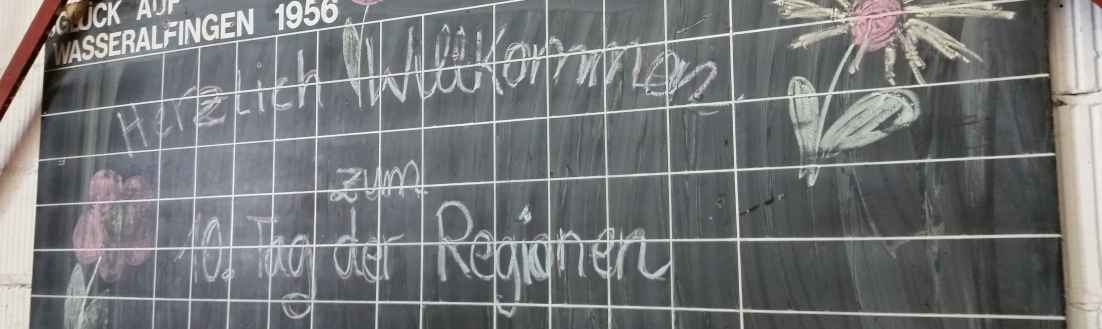 GLÜCK AUF
WASSERALFINGEN 1956
Herzlich Willkommen
zum
10. Tag der Regionen